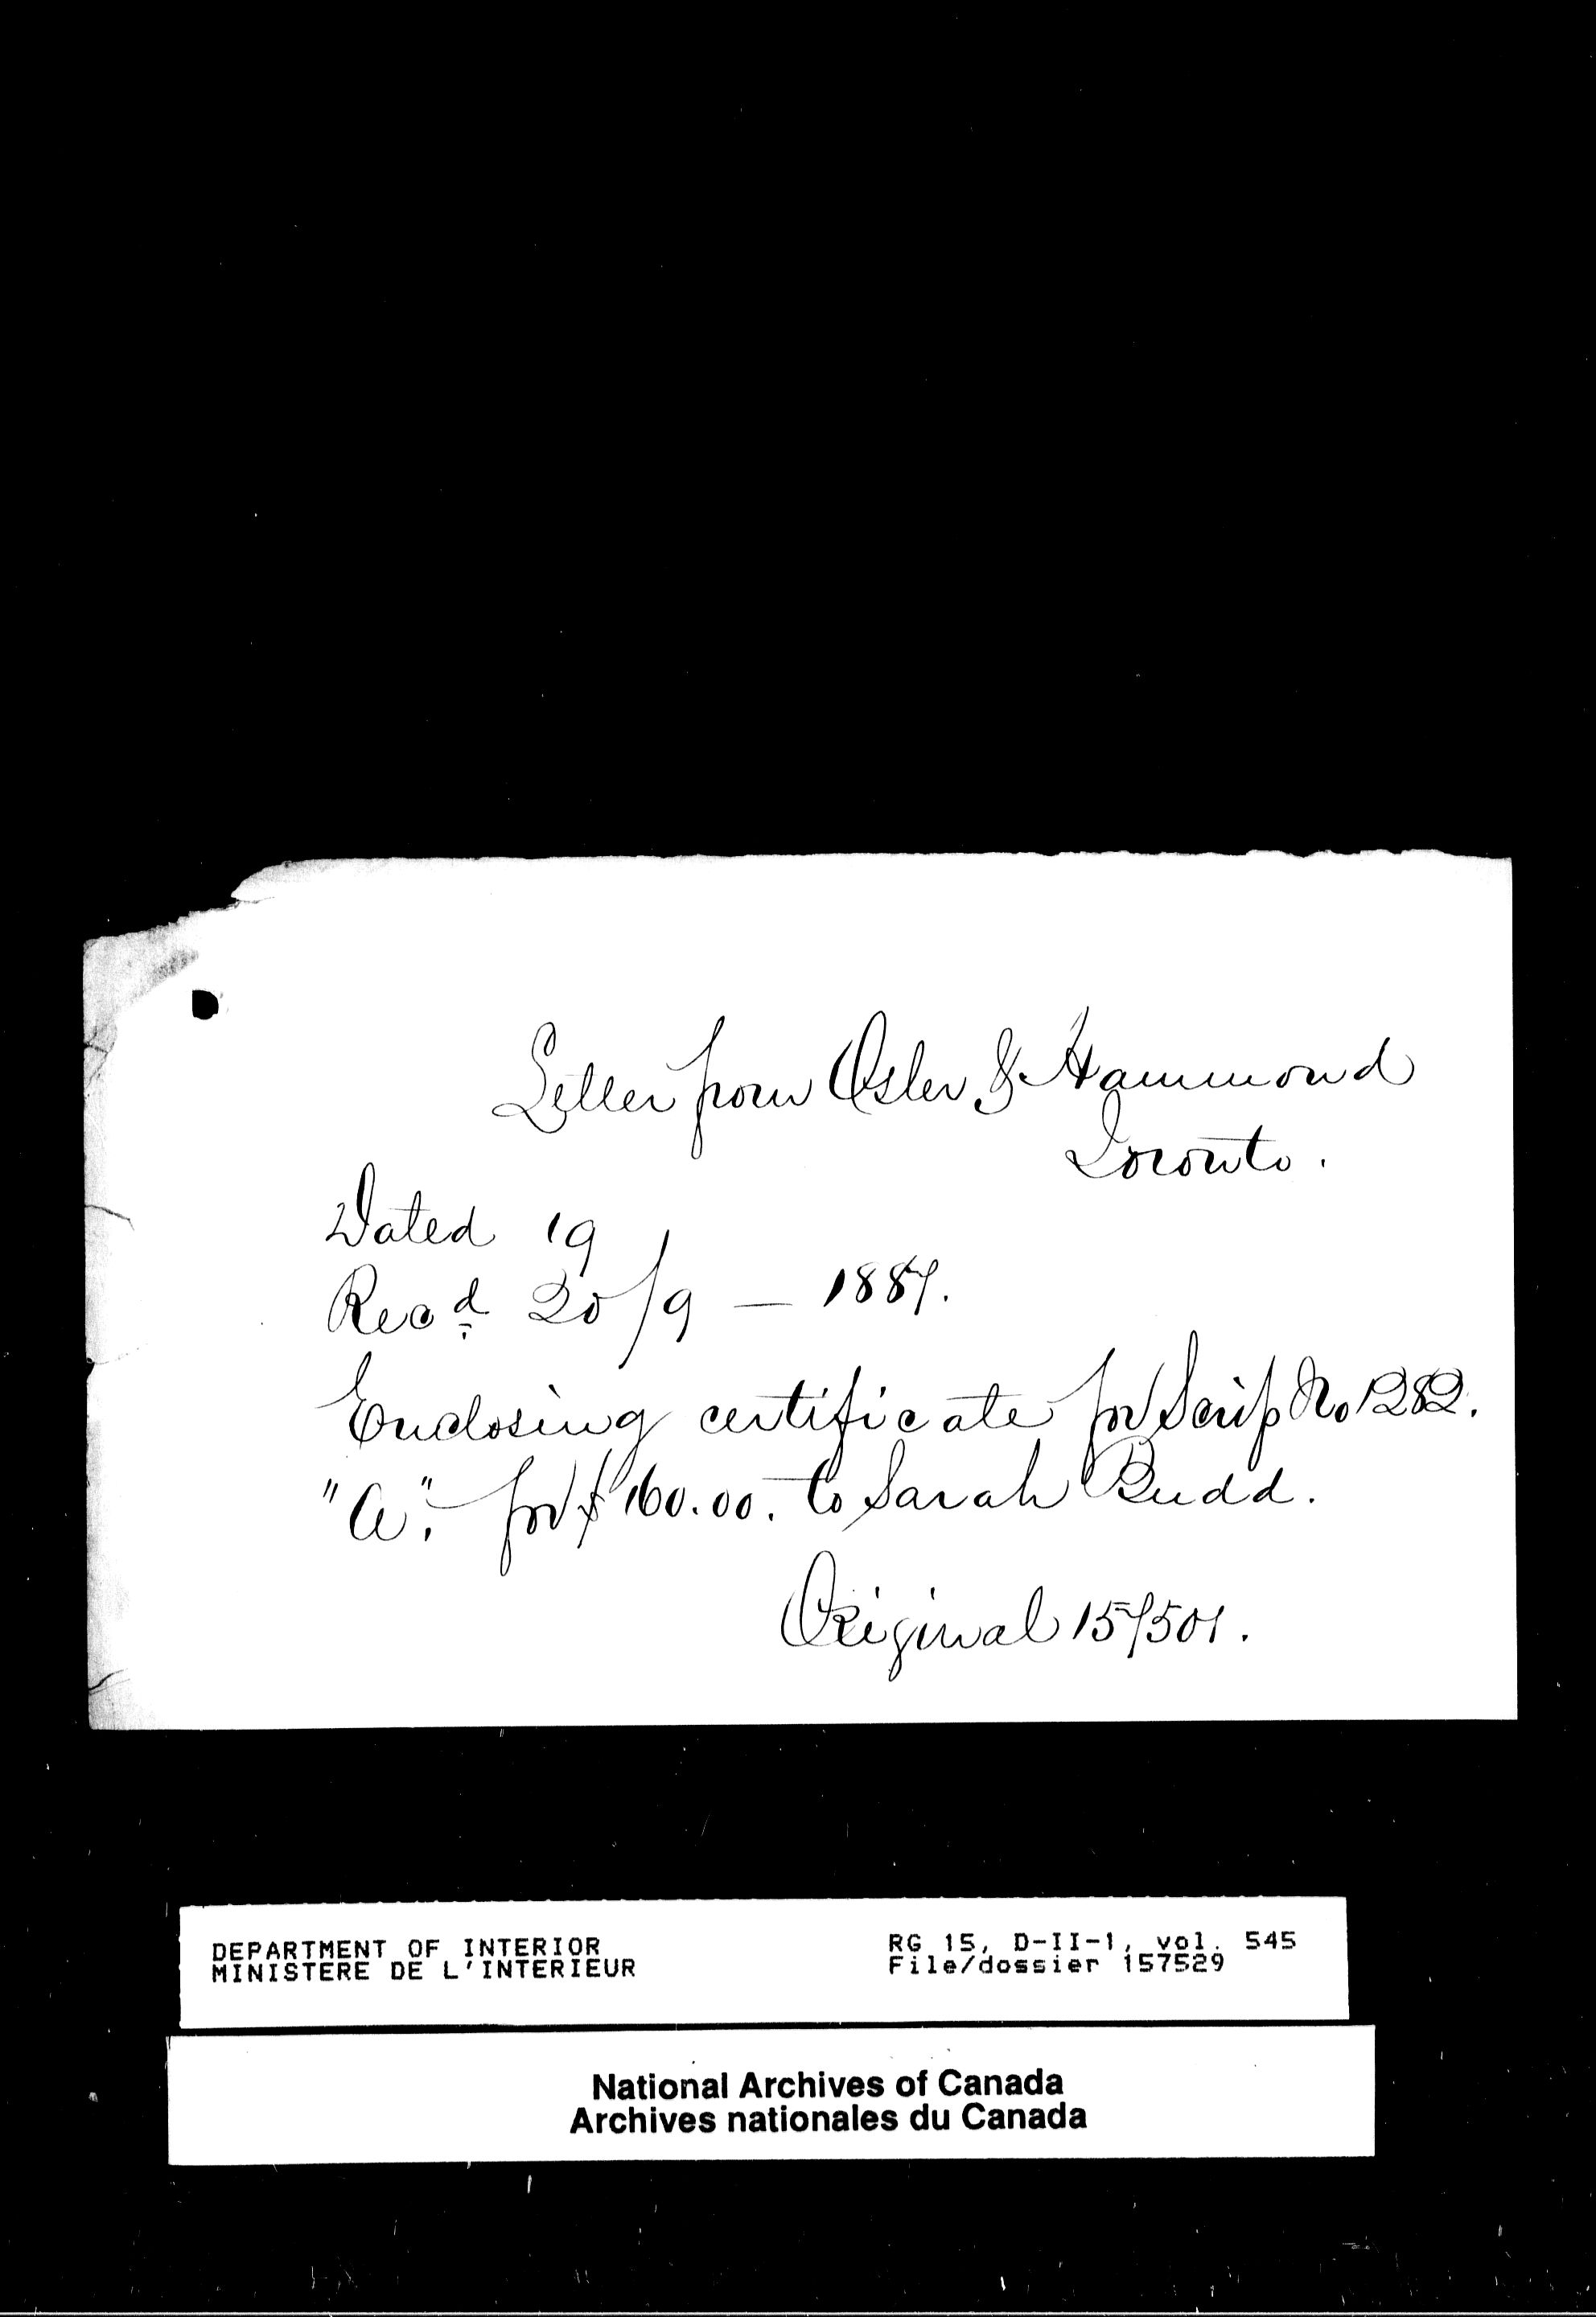 Letter from Osler & Hammond
Toronto.
Dated 19
Recd 20/9 — 1887.
Enclosing certificate for Scrip No 1282.
"A". for $160.00. to Sarah Budd.
Original 157501.
DEPARTMENT OF INTERIOR
MINISTERE DE L'INTERIEUR
RG 15, D-II-1, vol. 545
File/dossier 157529
National Archives of Canada
Archives nationales du Canada